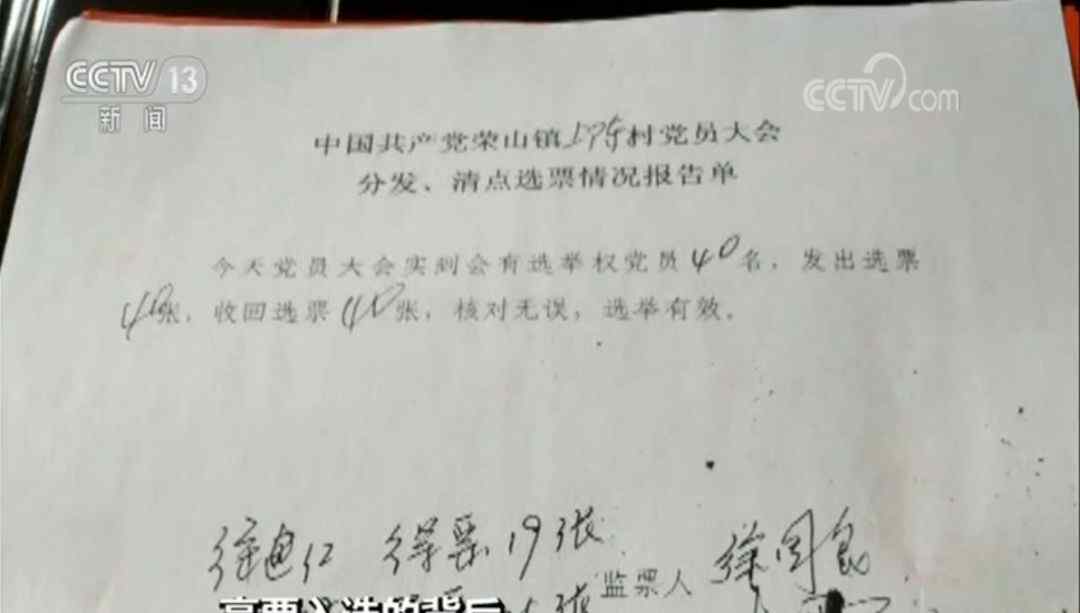 CCTV 13
新闻
CCTV.com
中国共产党荣山镇上坪村党员大会
分发、清点选票情况报告单
今天党员大会实到会有选举权党员40名，发出选票
40张，收回选票40张，核对无误，选举有效。
得票19张
监票人
张
高票入选的背后